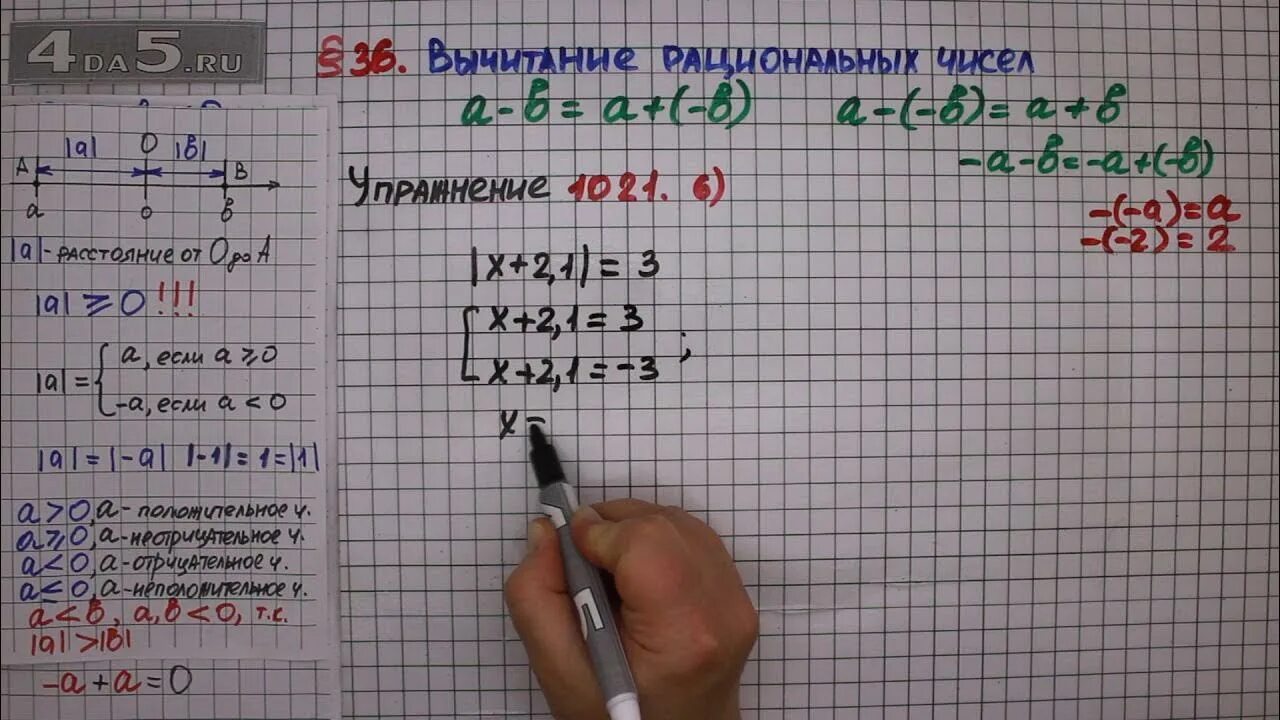 4DA5.RU
§36. Вычитание рациональных чисел
a-b=a+(-b) a-(-b)=a+b
-a-b=-a+(-b)
-(-a)=a
-(-2)=2
Упражнение 1021. б)
|x+2,1|=3
x+2,1=3
x+2,1=-3;
x=
|a| O |b|
A B
a o b
|a|-расстояние от O до A
|a|≥0!!!
|a|= a, если a≥0
-a, если a<0
|a|=|-a| |-1|=1=|1|
a>0, a-положительное ч.
a≥0, a-неотрицательное ч.
a<0, a-отрицательное ч.
a≤0, a-неположительное ч.
a<b, a,b<0, т.к.
|a|>|b|
-a+a=0